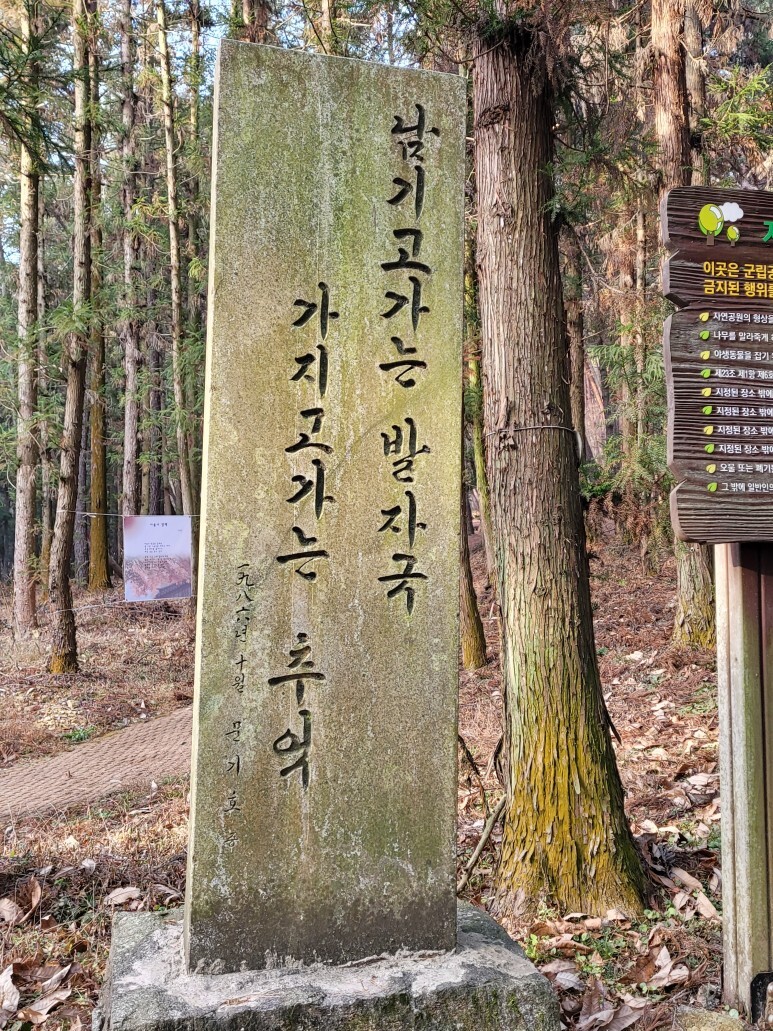 남기고가는 발자국
가지고가는 추억
一九八六년 十월 문기호
이곳은 군립공
금지된 행위를
자연공원의 형상을
나무를 말라죽게
야생동물을 잡기
제23조 제1항 제6호
지정된 장소 밖에
지정된 장소 밖에
지정된 장소 밖에
지정된 장소 밖에
오물 또는 폐기
그 밖에 일반인의